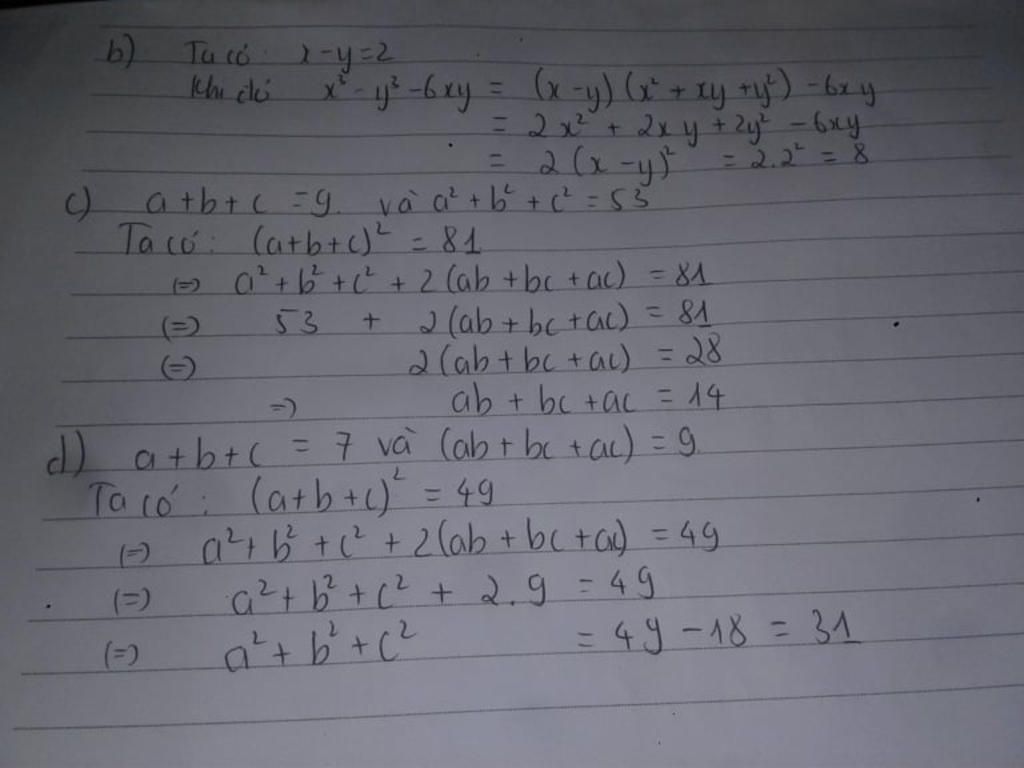 b) Ta có: x-y=2
Khi đó x³ - y³ - 6xy = (x-y)(x² + xy + y²) - 6xy
= 2x² + 2xy + 2y² - 6xy
= 2(x-y)² = 2.2² = 8
c) a+b+c = 9 và a² + b² + c² = 53
Ta có: (a+b+c)² = 81
(=) a² + b² + c² + 2(ab + bc + ac) = 81
(=) 53 + 2(ab + bc + ac) = 81
(=) 2(ab + bc + ac) = 28
=) ab + bc + ac = 14
d) a+b+c = 7 và (ab + bc + ac) = 9
Ta có: (a+b+c)² = 49
(=) a² + b² + c² + 2(ab + bc + ac) = 49
(=) a² + b² + c² + 2.9 = 49
(=) a² + b² + c² = 49 - 18 = 31